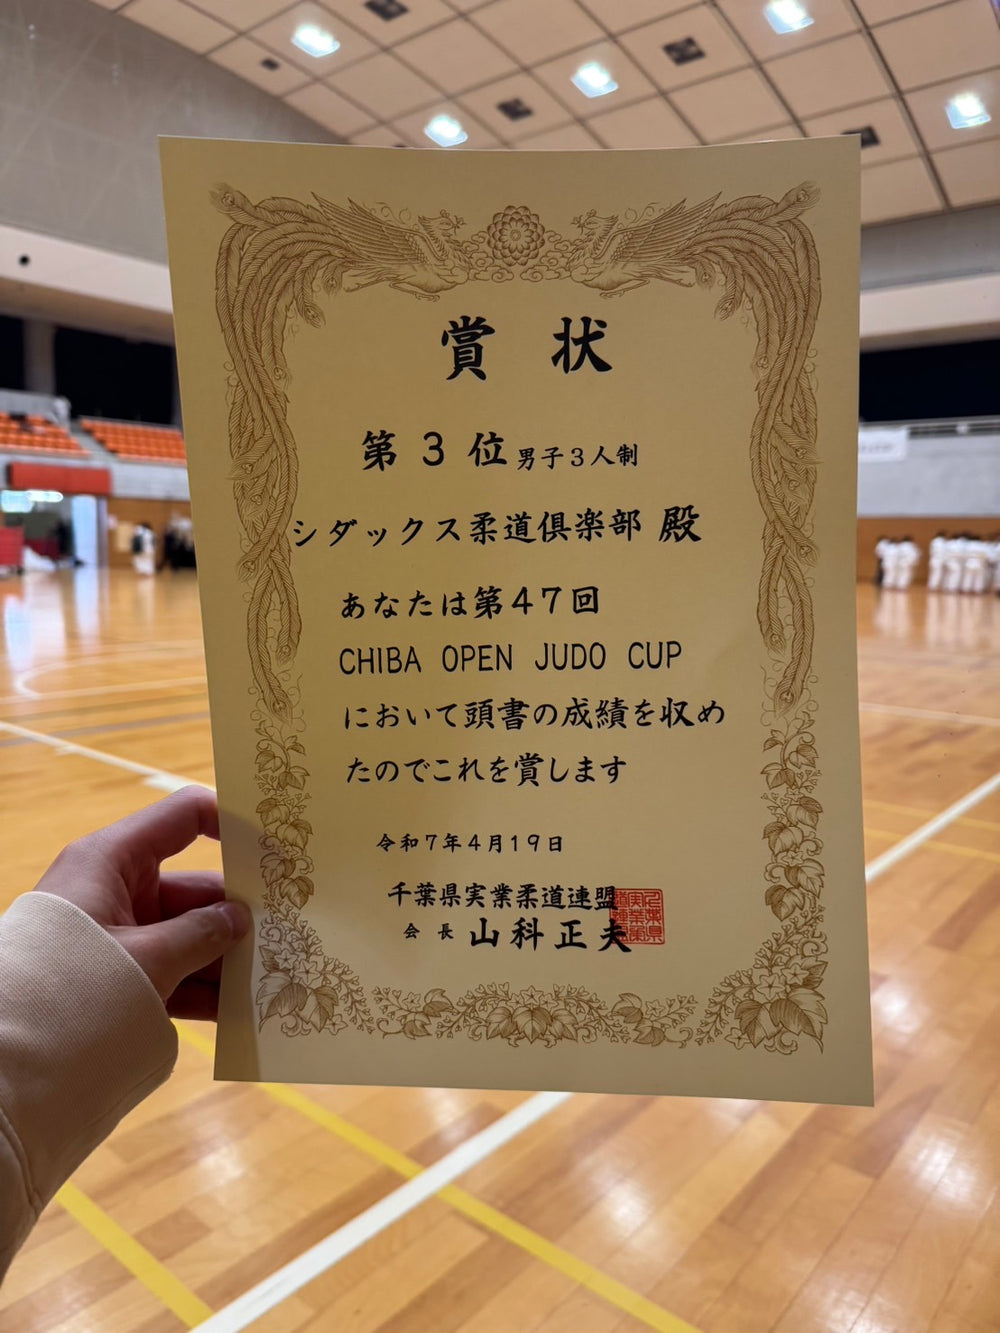 賞状
第3位 男子3人制
シダックス柔道倶楽部 殿
あなたは第47回
CHIBA OPEN JUDO CUP
において頭書の成績を収め
たのでこれを賞します
令和7年4月19日
千葉県実業柔道連盟
会長 山科正夫